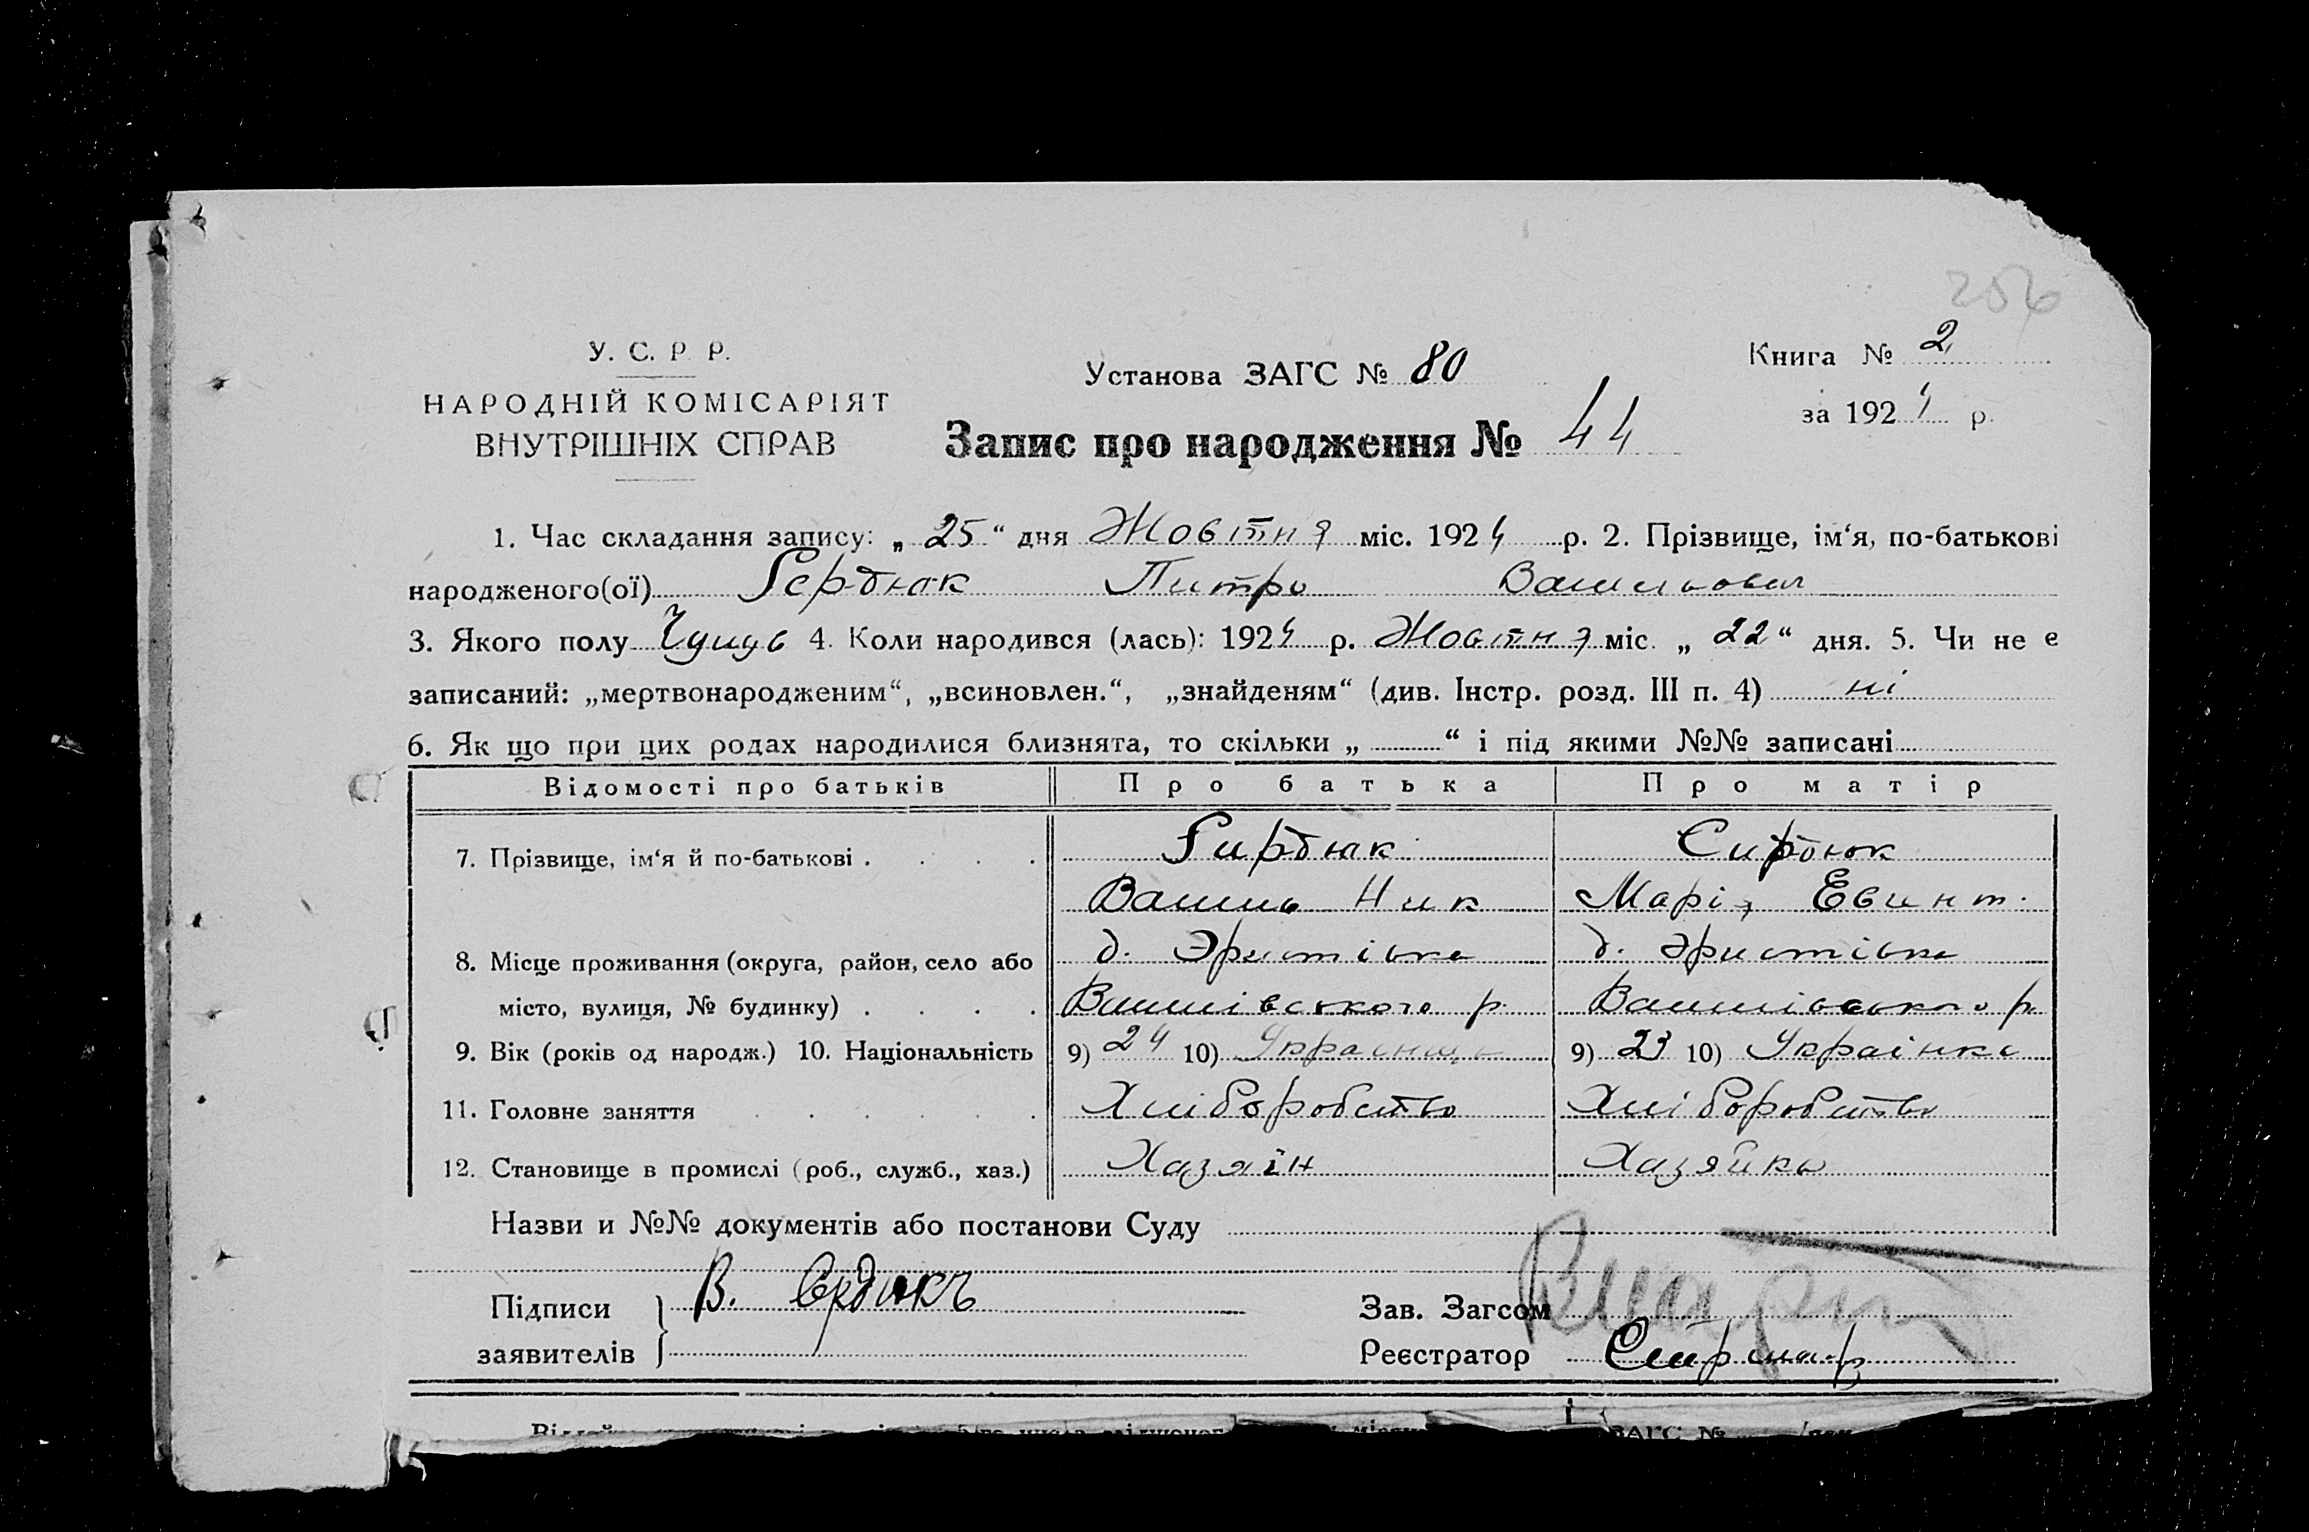 256
У. С. Р. Р.
НАРОДНІЙ КОМІСАРІЯТ
ВНУТРІШНІХ СПРАВ
Установа ЗАГС № 80
Книга № 2
за 1924 р.
Запис про народження № 44
1. Час складання запису: „25“ дня Жовтня міс. 1924 р. 2. Прізвище, ім‘я, по-батькові
народженого(ої) Сердюк Питро Васильович
3. Якого полу 4. Коли народився (лась): 1924 р. Жовтня міс. „22“ дня. 5. Чи не є
записаний: „мертвонародженим“, „всиновлен.“, „знайденям“ (див. Інстр. розд. III п. 4) ні
6. Як що при цих родах народилися близнята, то скільки „ “ і під якими №№ записані
Відомості про батьків Про батька Про матір
7. Прізвище, ім‘я й по-батькові . . . . Сирдюк Сирдюк
Василь Ник Марія Евинт.
8. Місце проживання (округа, район, село або д. Эристівка д. Эристівка
місто, вулиця, № будинку) . . . . р. р.
9. Вік (років од народж.) 10. Національність 9) 24 10) Украєнць 9) 23 10) Украінка
11. Головне заняття . . . . . . Хліборобство Хліборобство
12. Становище в промислі (роб., служб., хаз.) Хазяїн Хазяйка
Назви и №№ документів або постанови Суду
Підписи В. Сердюкъ Зав. Загсом
заявителів Реєстратор
ЗАГС №